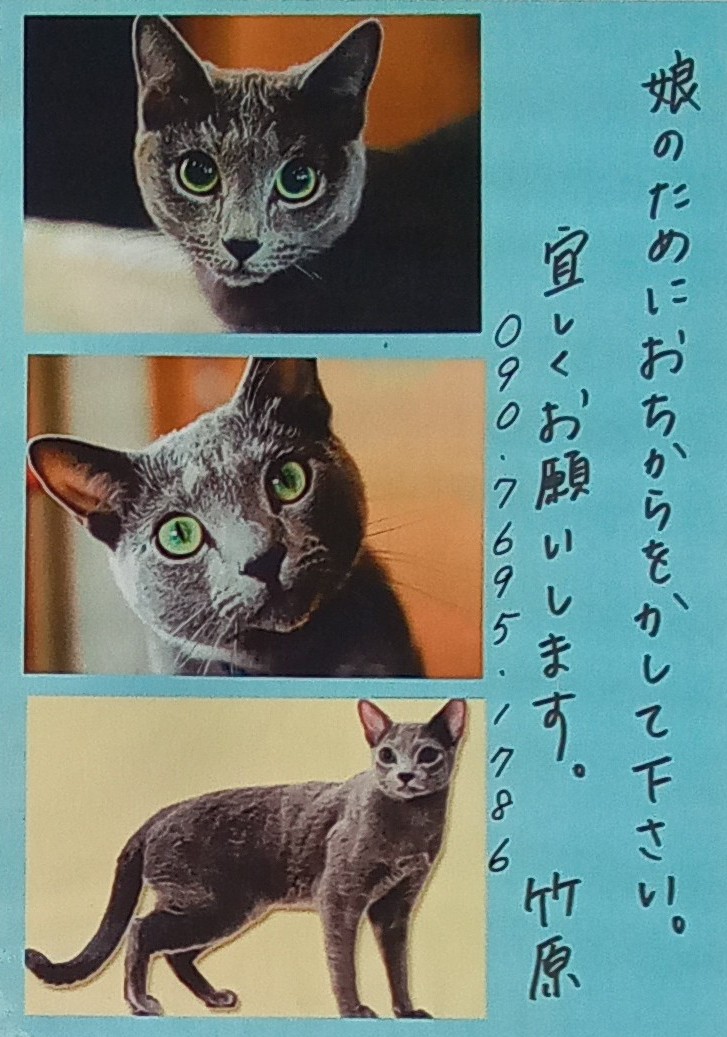 娘のためにおちからをかして下さい。
宜しくお願いします。
竹原
090.7695.1786